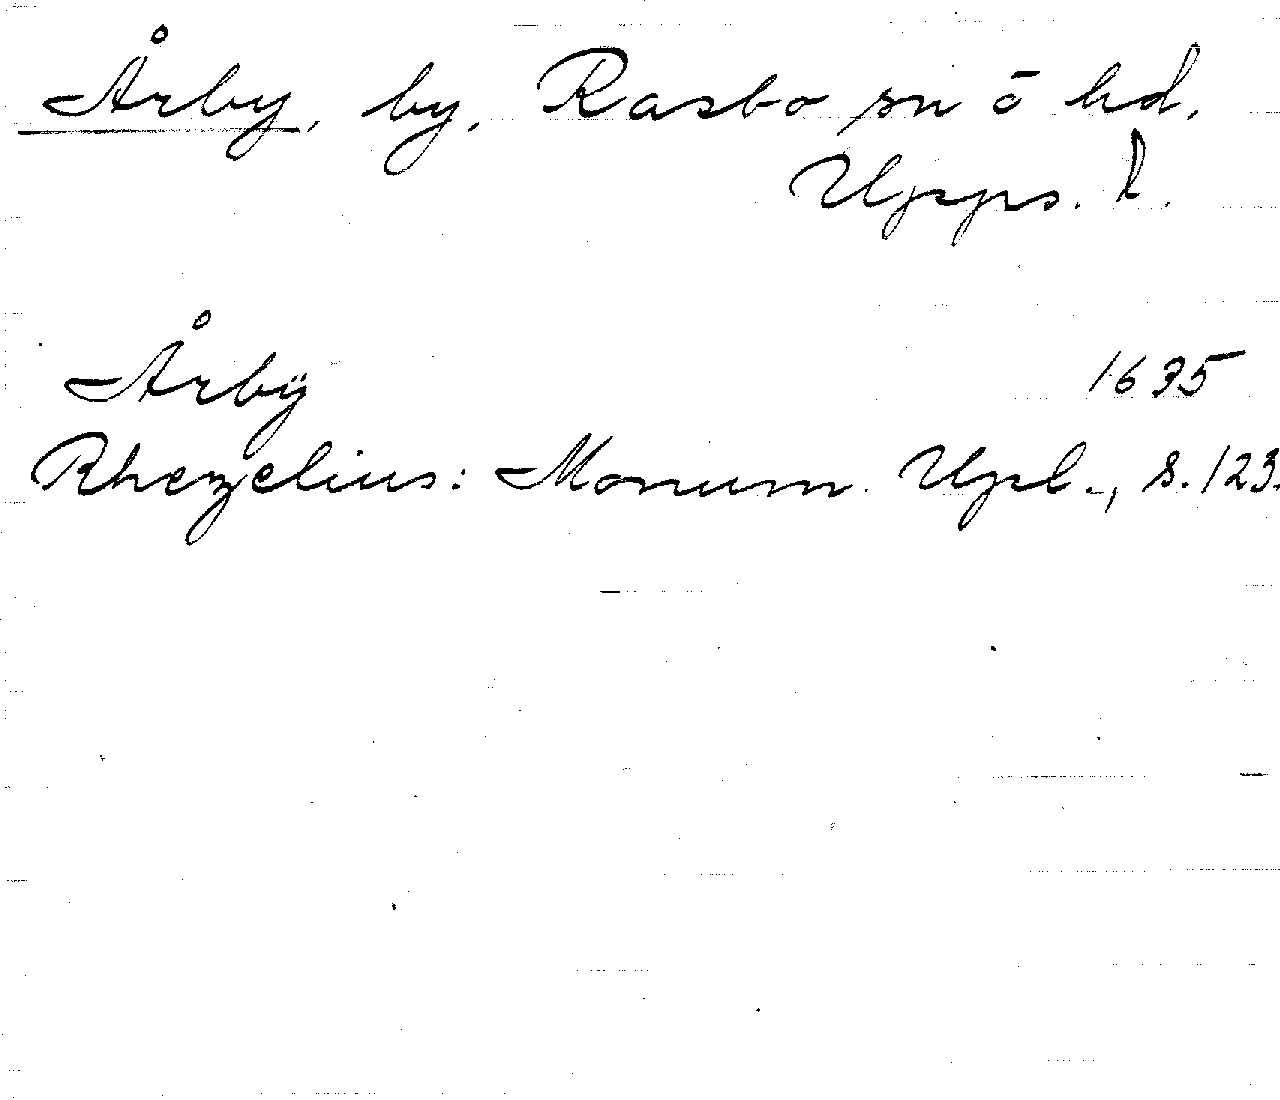 Årby, by, Rasbo sn o hd,
Upps. l.
Årbÿ 1635
Rhezelius: Monum. Upl., s. 123.